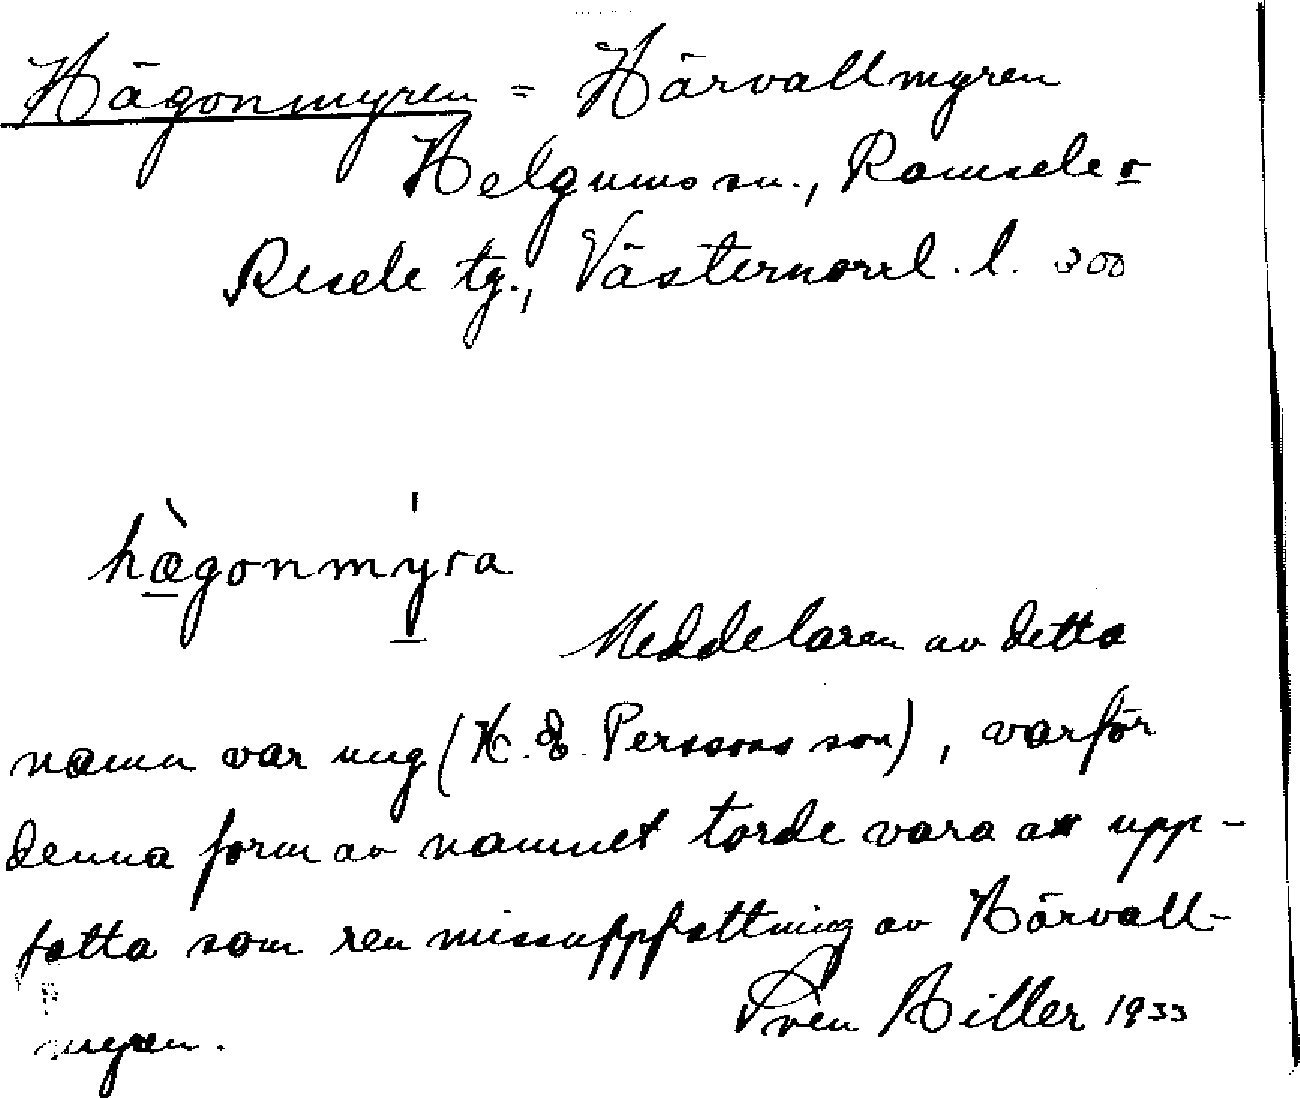 Hägonmyren = Härvallmyren
Helgums sn., Ramsele o
Resele tg., Västernorrl. l. 300
hægonmyra
Meddelaren av detta
namn var ung (H. E. Perssons son), varför
denna form av namnet torde vara att upp-
fatta som ren missuppfattning av Härvall-
myren.
Sven Hiller 1933